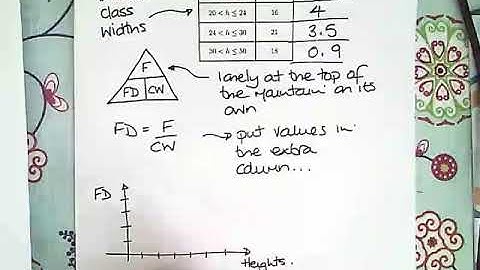 class
widths
20 < h ≤ 24 16 4
24 < h ≤ 30 21 3.5
30 < h ≤ 50 18 0.9
F
FD CW
lonely at the top of
the mountain on its
own
FD = F
CW
put values in
the extra
column...
FD
Heights.